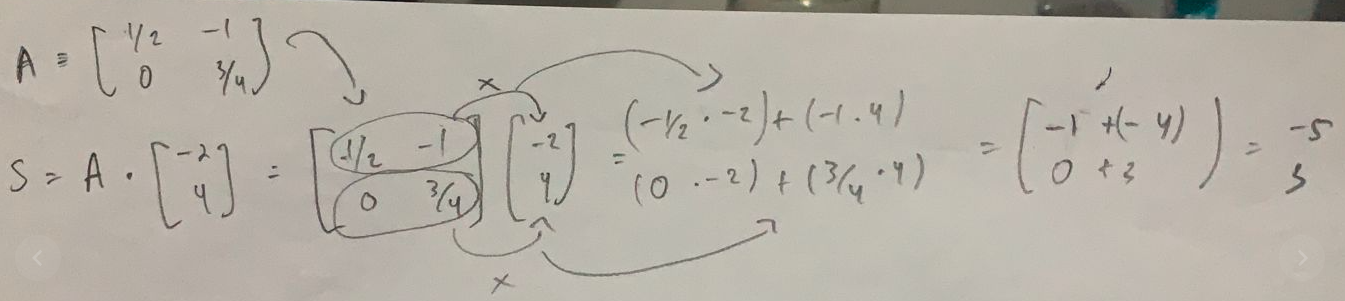 A = [ 1/2 -1 ; 0 3/4 ]
x
S = A · [ -2 ; 4 ] = [ 1/2 -1 ; 0 3/4 ] [ -2 ; 4 ] = (-1/2 · -2) + (-1 · 4) ; (0 · -2) + (3/4 · 4) = [ -1 + (-4) ; 0 + 3 ] = -5 ; 3
x